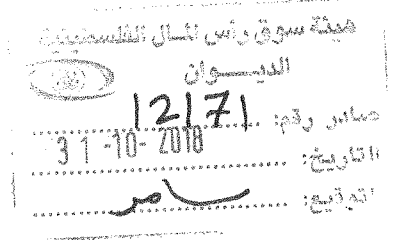 هيئة سوق رأس المال الفلسطينية
الديـــوان
صادر رقم: 12171
التاريخ: 31-10-2018
التوقيع: سامر